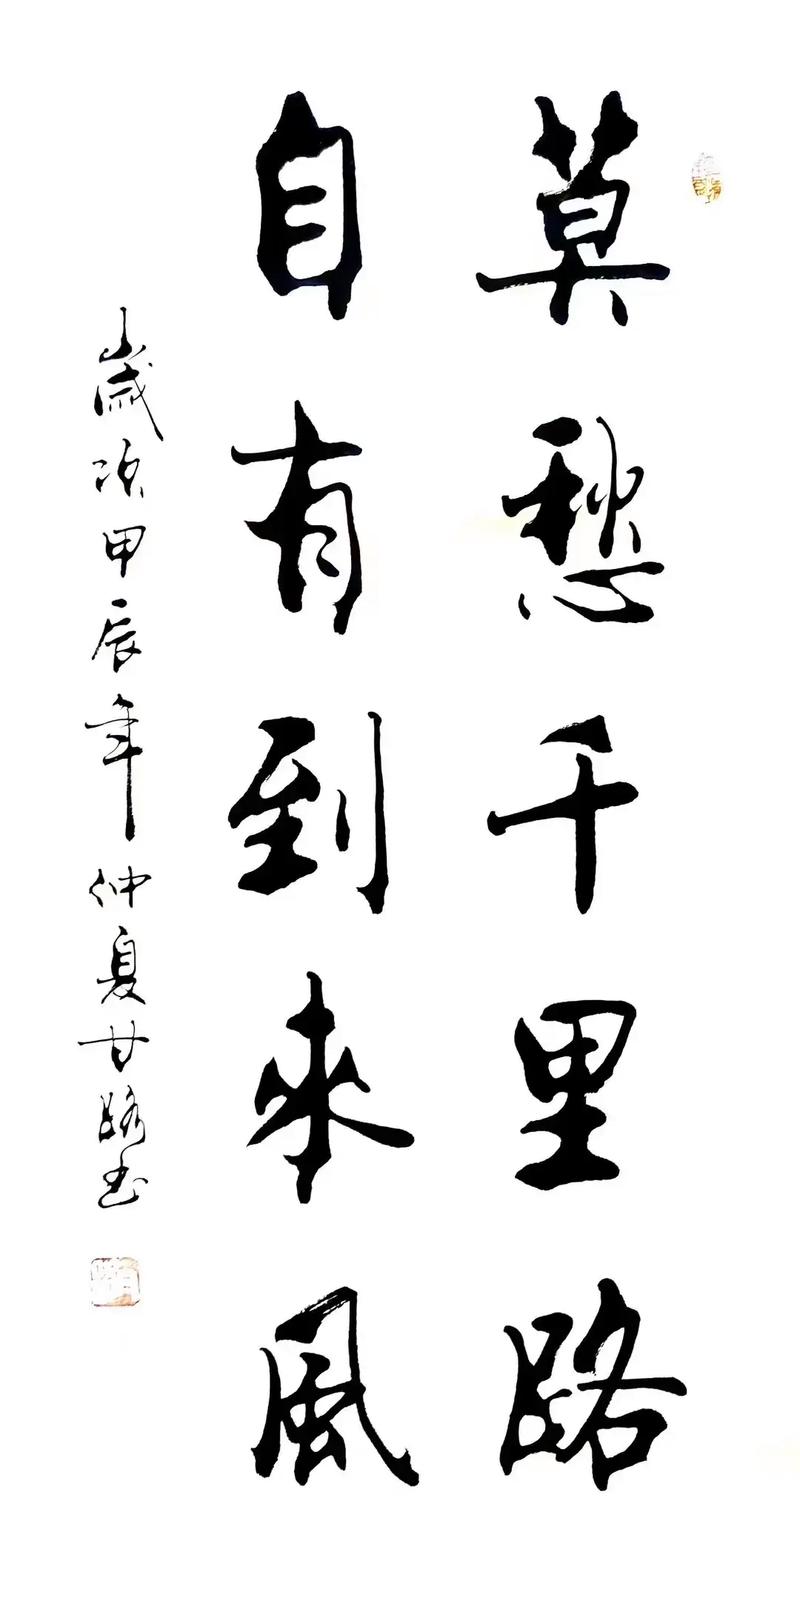 莫愁千里路
自有到來風
歲次甲辰年仲夏甘路书